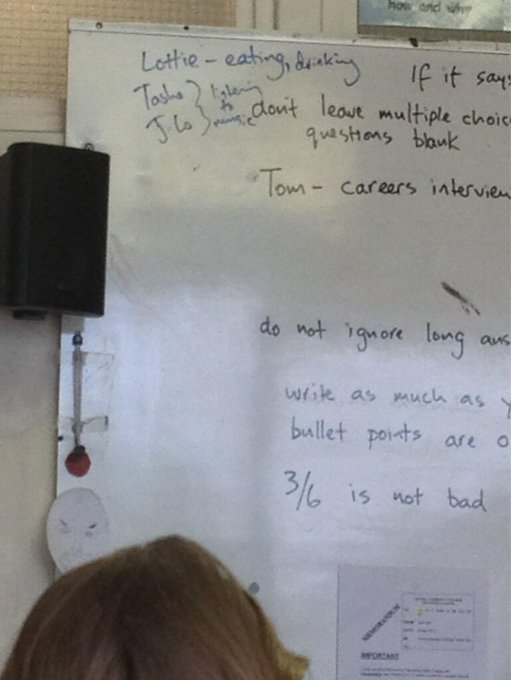 how and why
Lottie - eating, drinking
If it says
Tasha } listening
J-Lo } to music
don't leave multiple choic
questions blank
Tom - careers interview
do not ignore long ans
write as much as y
bullet points are o
3/6 is not bad
MEMORANDUM
IMPORTANT